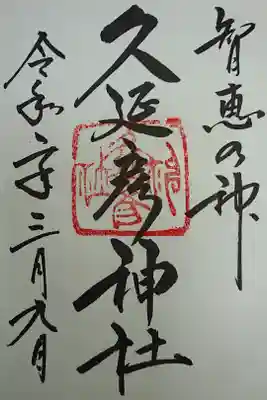 智恵の神
久延彦神社
令和二年三月九日